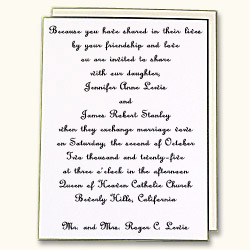 Because you have shared in their lives
by your friendship and love
ou are invited to share
with our daughter,
Jennifer Anne Lewis
and
James Robert Stanley
when they exchange marriage vows
on Saturday, the second of October
Two thousand and twenty-five
at three o'clock in the afternoon
Queen of Heaven Catholic Church
Beverly Hills, California
Mr. and Mrs. Roger C. Lewis